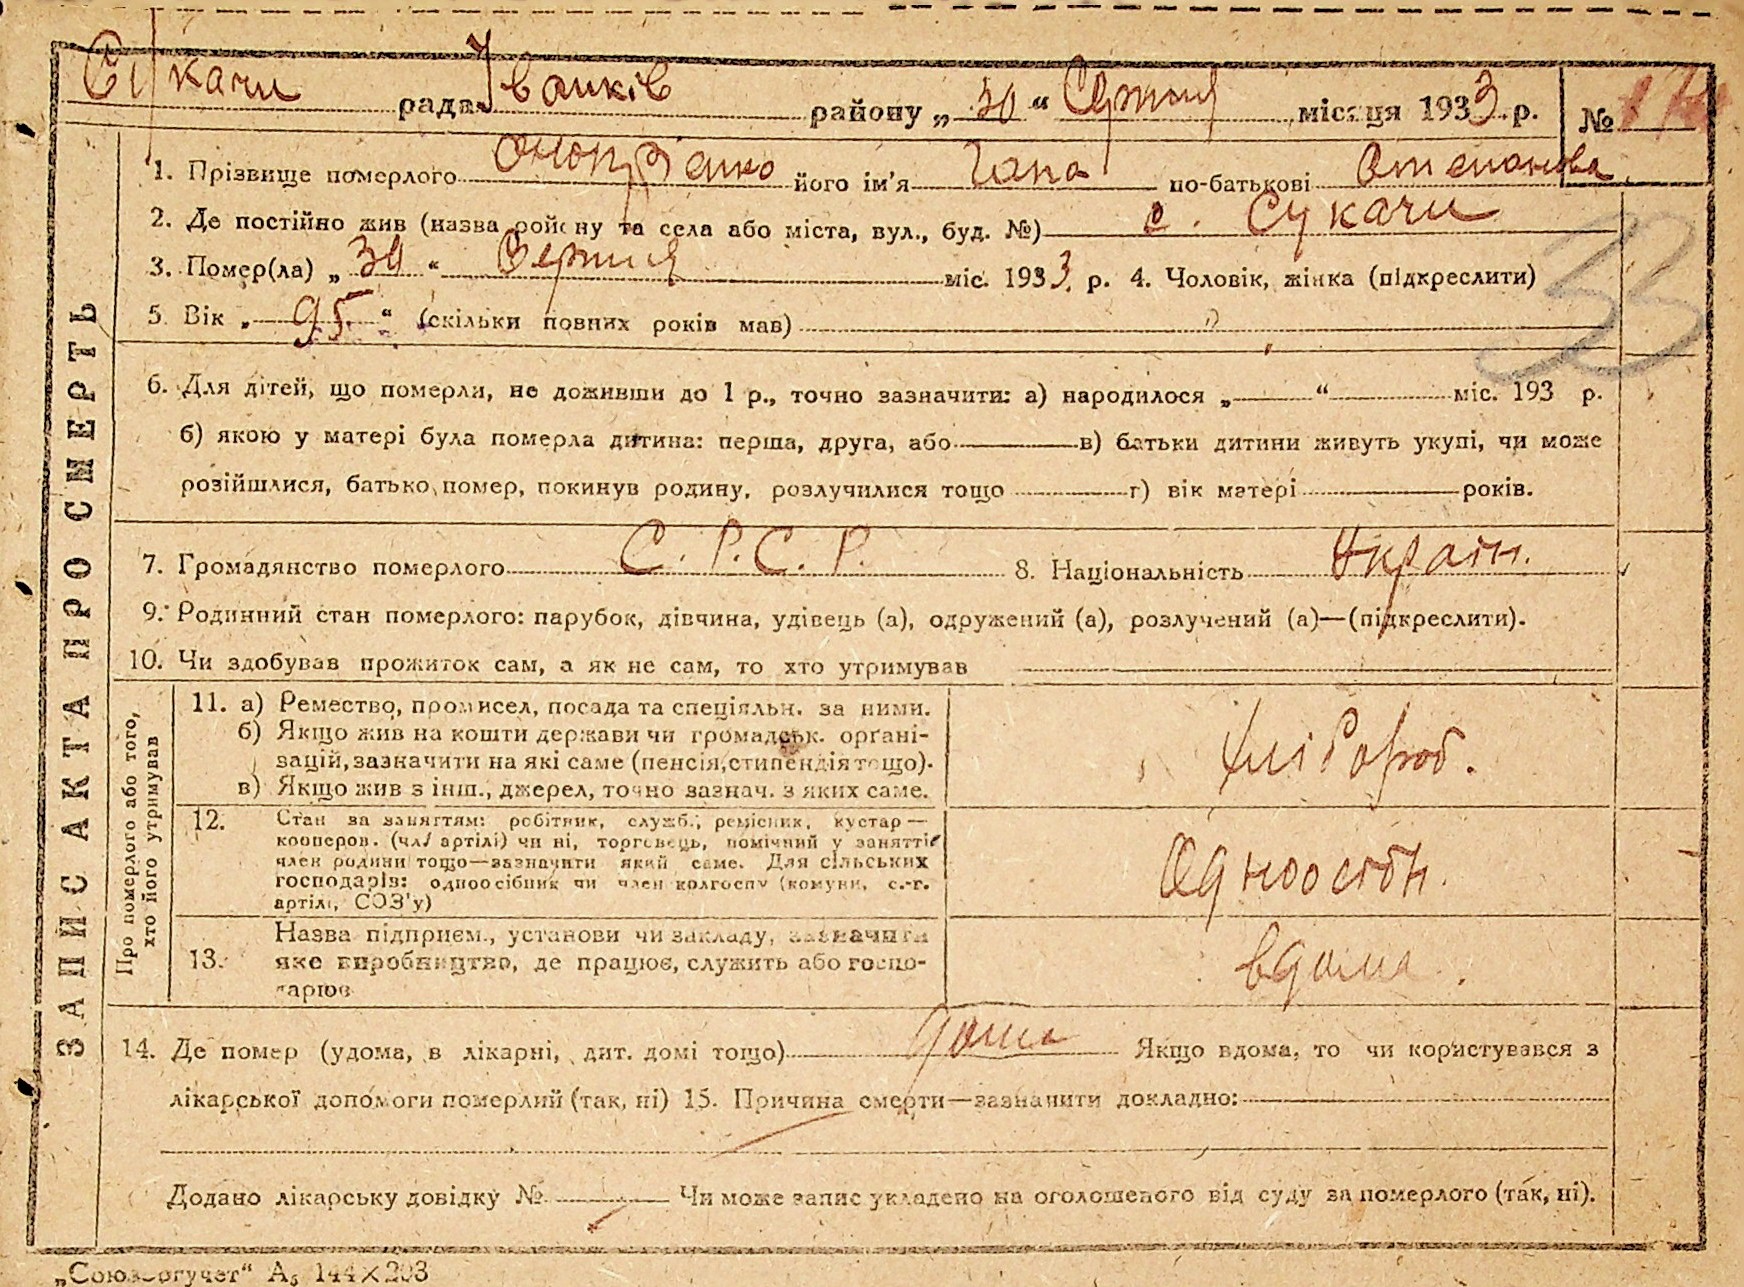 Сукачи рада Іванків району „ 30 “ Серпня місяця 1933 р. №
1. Прізвище померлого його ім'я Гапа по-батькові Степанова
2. Де постійно жив (назва району та села або міста, вул., буд. №) с. Сукачи
3. Помер(ла) „ 30 “ Серпня міс. 1933 р. 4. Чоловік, жінка (підкреслити)
5. Вік „ 95 “ (скільки повних років мав)
6. Для дітей, що померли, не доживши до 1 р., точно зазначити: а) народилося „ “ міс. 193 р.
б) якою у матері була померла дитина: перша, друга, або в) батьки дитини живуть укупі, чи може
розійшлися, батько помер, покинув родину, розлучилися тощо г) вік матері років.
7. Громадянство померлого С. Р. С. Р. 8. Національність Україн.
9. Родинний стан померлого: парубок, дівчина, удівець (а), одружений (а), розлучений (а)—(підкреслити).
10. Чи здобував прожиток сам, а як не сам, то хто утримував
ЗАПИС АКТА ПРО СМЕРТЬ
Про померлого або того,
хто його утримував
11. а) Ремество, промисел, посада та спеціяльн. за ними.
б) Якщо жив на кошти держави чи громадськ. орґані-
зацій, зазначити на які саме (пенсія, стипендія тощо).
в) Якщо жив з інш., джерел, точно зазнач. з яких саме.
хлібороб.
12. Стан за заняттям: робітник, служб., ремісник, кустар—
кооперов. (чл. артілі) чи ні, торговець, помічний у занятті
член родини тощо—зазначити який саме. Для сільських
господарів: одноосібник чи член колгоспу (комуни, с.-г.
артілі, СОЗ'у)
Одноосібн.
13. Назва підприєм., установи чи закладу, зазначити
яке виробництво, де працює, служить або госпо-
дарює
вдома.
14. Де помер (удома, в лікарні, дит. домі тощо) дома Якщо вдома, то чи користувався з
лікарської допомоги померлий (так, ні) 15. Причина смерти—зазначити докладно:
Додано лікарську довідку № Чи може запис укладено на оголошеного від суду за померлого (так, ні).
„Союзоргучет“ А₅ 144×203
33